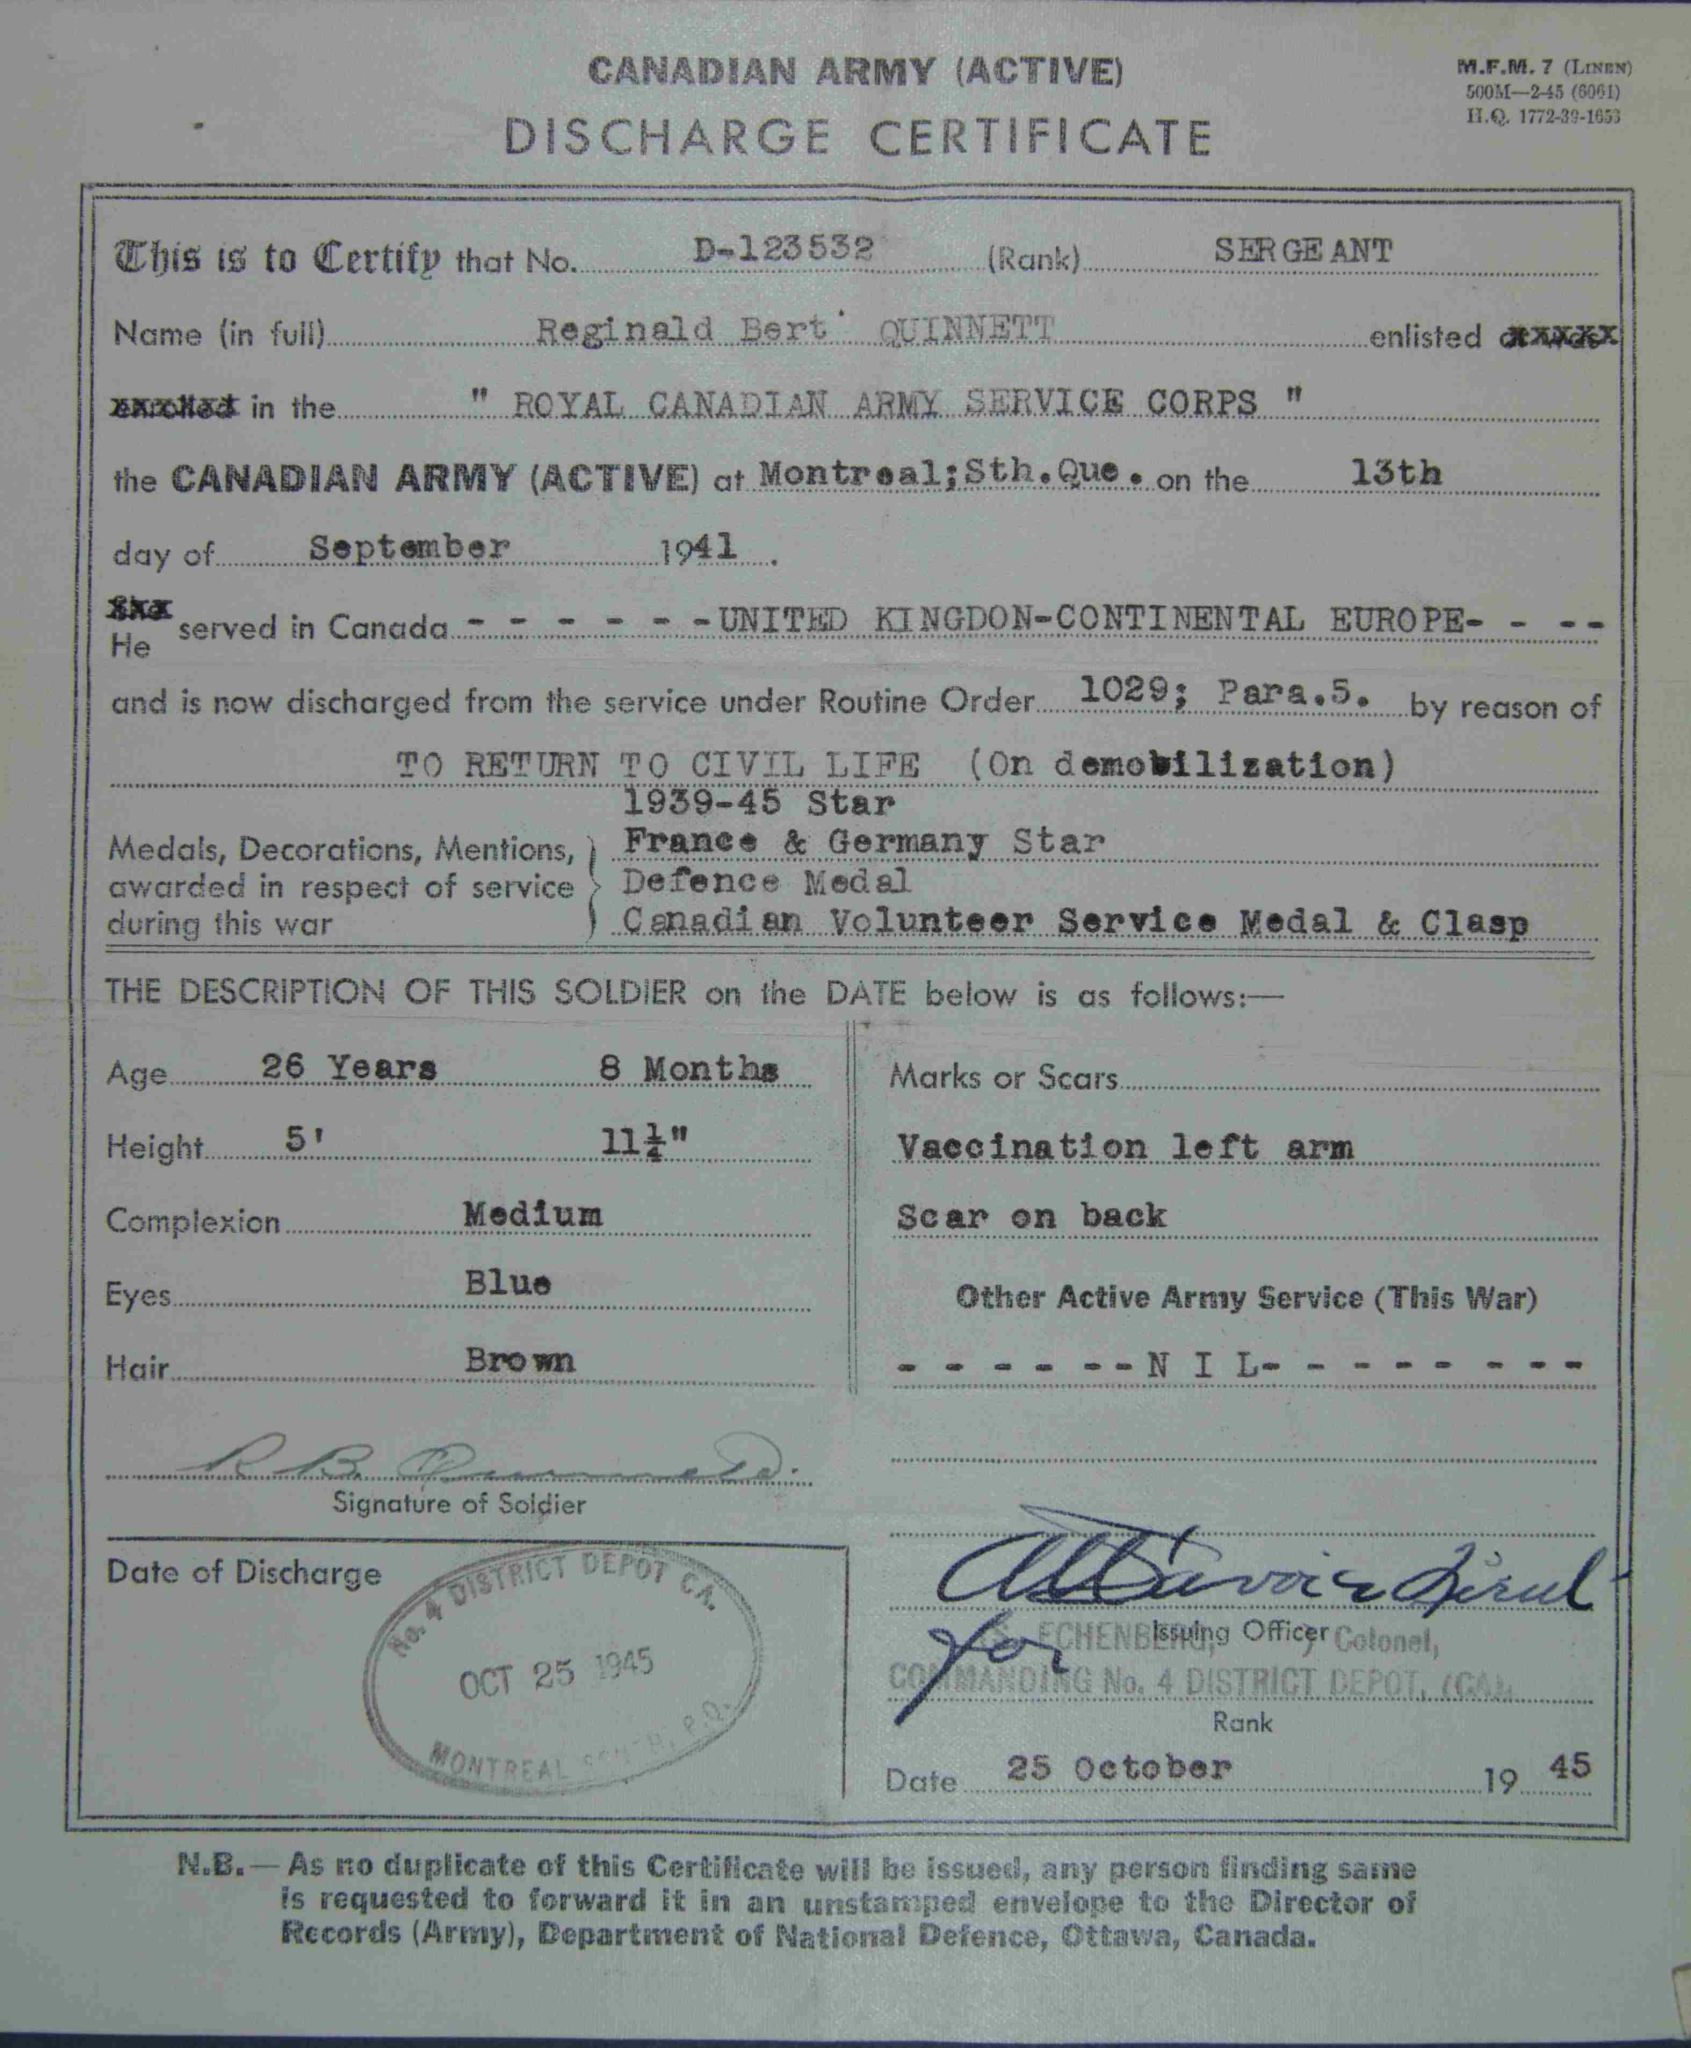 CANADIAN ARMY (ACTIVE)
DISCHARGE CERTIFICATE
M.F.M. 7 (LINEN)
500M—2-45 (6061)
H.Q. 1772-39-1653
This is to Certify that No. D-123532 (Rank) SERGEANT
Name (in full) Reginald Bert QUINNETT enlisted xxxxx
xxxxxxx in the " ROYAL CANADIAN ARMY SERVICE CORPS "
the CANADIAN ARMY (ACTIVE) at Montreal;Sth.Que. on the 13th
day of September 1941.
She
He served in Canada - - - - - -UNITED KINGDON-CONTINENTAL EUROPE- - --
and is now discharged from the service under Routine Order 1029; Para.5. by reason of
TO RETURN TO CIVIL LIFE (On demobilization)
Medals, Decorations, Mentions, awarded in respect of service during this war
1939-45 Star
France & Germany Star
Defence Medal
Canadian Volunteer Service Medal & Clasp
THE DESCRIPTION OF THIS SOLDIER on the DATE below is as follows:—
Age 26 Years 8 Months
Height 5' 11¼"
Complexion Medium
Eyes Blue
Hair Brown
Marks or Scars
Vaccination left arm
Scar on back
Other Active Army Service (This War)
- - - - - --N I L- - - - - - - - -
R B Quinnett.
Signature of Soldier
Date of Discharge
No. 4 DISTRICT DEPOT CA.
OCT 25 1945
MONTREAL SOUTH, P.Q.
for
Issuing Officer
ECHENBERG, Colonel,
COMMANDING No. 4 DISTRICT DEPOT, (CA),
Rank
Date 25 October 19 45
N.B.— As no duplicate of this Certificate will be issued, any person finding same
is requested to forward it in an unstamped envelope to the Director of
Records (Army), Department of National Defence, Ottawa, Canada.